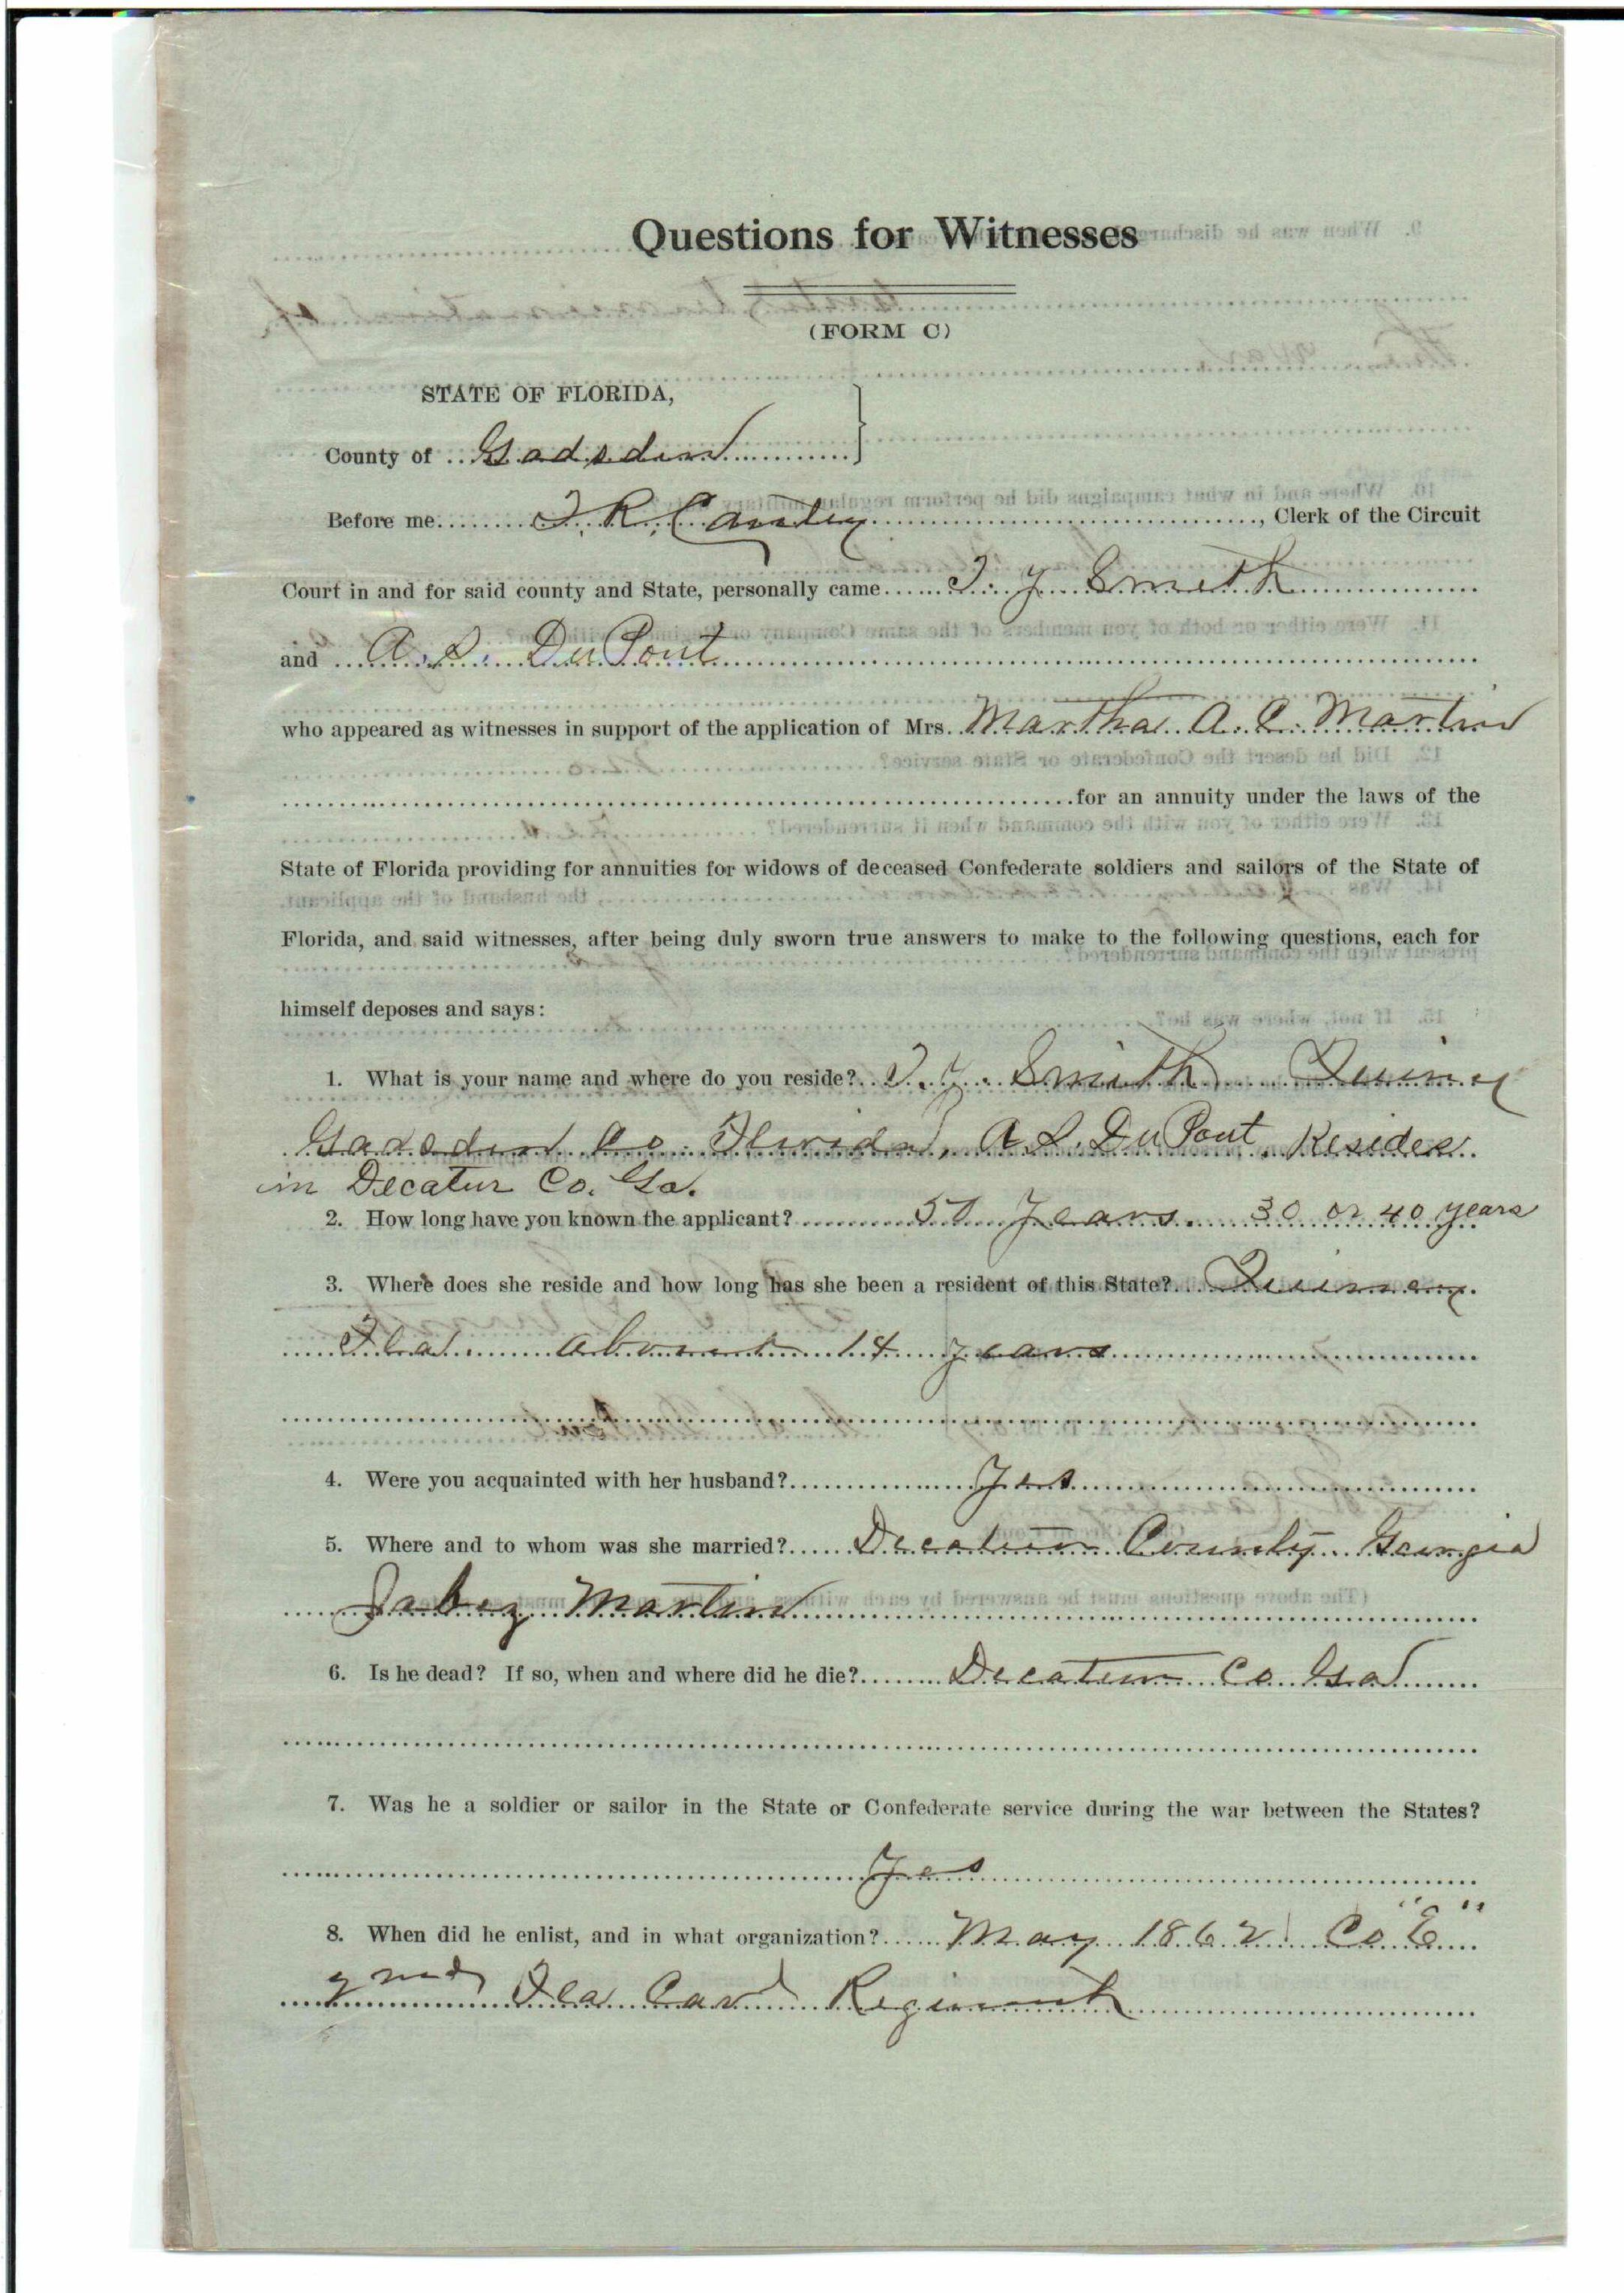 Questions for Witnesses
(FORM C)
STATE OF FLORIDA,
County of Gadsden
Before me T. R. Cantey, Clerk of the Circuit
Court in and for said county and State, personally came T. Y. Smith
and A. S. DuPont
who appeared as witnesses in support of the application of Mrs. Martha A. C. Martin
for an annuity under the laws of the
State of Florida providing for annuities for widows of deceased Confederate soldiers and sailors of the State of
Florida, and said witnesses, after being duly sworn true answers to make to the following questions, each for
himself deposes and says:
1. What is your name and where do you reside? T. Y. Smith Quincy
Gadsden Co. Florida, A. S. DuPont Resides
in Decatur Co. Ga.
2. How long have you known the applicant? 50 Years. 30 or 40 years
3. Where does she reside and how long has she been a resident of this State? Quincy
Fla. about 14 years
4. Were you acquainted with her husband? Yes
5. Where and to whom was she married? Decatur County Georgia
Jabez Martin
6. Is he dead? If so, when and where did he die? Decatur Co Ga
7. Was he a soldier or sailor in the State or Confederate service during the war between the States?
Yes
8. When did he enlist, and in what organization? May 1862 Co "E"
2nd Fla Cav Regiment